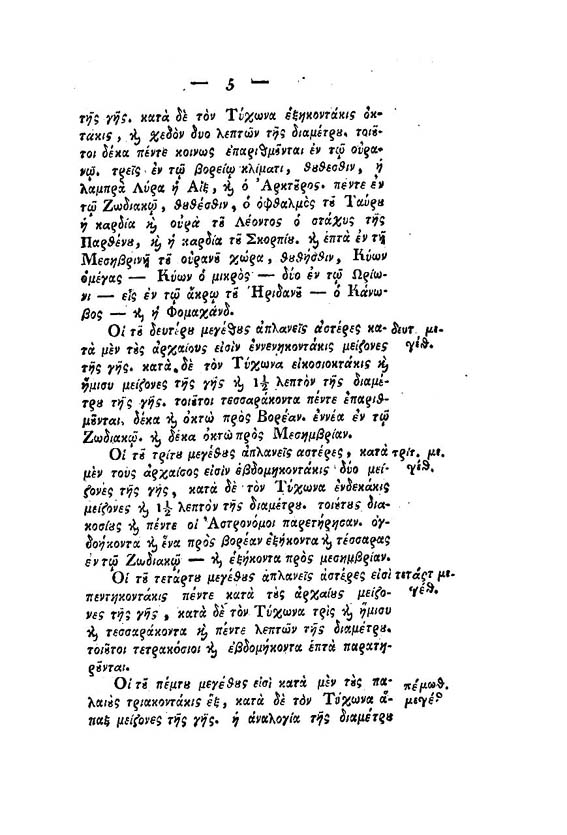 — 5 —
τῆς γῆς. κατὰ δὲ τὸν Τύχωνα ἑξηκοντάκις ὀκ-
τάκις, ϗ χεδὸν δυο λεπτῶν τῆς διαμέτρȣ. τοιȣ̃-
τοι δέκα πέντε κοινως ἐπαριθμȣ̃νται ἐν τῷ οὐρα-
νῷ. τρεῖς ἐν τῷ βορείῳ κλίματι, ϑȣϑεσθιν, ἡ
λαμπρὰ Λύρα ἡ Αἲξ, ϗ ὁ Ἀρκτȣ̃ρος. πέντε ἐν
τῷ Ζωδιακῷ, ϑȣϑέσθιν, ὁ ὀφθαλμὸς τȣ̃ Ταύρȣ
ἡ καρδία ϗ οὐρὰ τȣ̃ Λέοντος ὁ στάχυς τῆς
Παρθένȣ, ϗ ἡ καρδία τȣ̃ Σκορπίȣ. ϗ ἑπτὰ ἐν τῇ
Μεσημβρινῇ τȣ̃ οὐρανȣ̃ χώρα, ϑȣϑήσθιν, Κύων
ὁμέγας — Κύων ὁ μικρὸς — δύο ἐν τῷ Ὠρίω-
νι — εἷς ἐν τῷ ἄκρῳ τȣ̃ Ἠριδανȣ̃ — ὁ Κάνω-
βος — ϗ ἡ Φομαχάνδ.
Οἱ τȣ̃ δευτέρȣ μεγέθȣς ἀπλανεῖς ἀστέρες κα- δευτ. με-
τὰ μὲν τȣς ἀρχαίους εἰσὶν ἐννενηκοντάκις μείζονες γέθ.
τῆς γῆς. κατὰ δὲ τὸν Τύχωνα εἰκοσιοκτάκις ϗ
ἥμισυ μείζονες τῆς γῆς ϗ 1½ λεπτὸν τῆς διαμέ-
τρȣ τῆς γῆς. τοιȣ̃τοι τεσσαράκοντα πέντε ἐπαριθ-
μȣ̃νται, δέκα ϗ ὀκτὼ πρὸς Βορέαν. ἐννέα ἐν τῷ
Ζωδιακῷ. ϗ δέκα ὀκτὼ πρὸς Μεσημβρίαν.
Οἱ τȣ̃ τρίτȣ μεγέθȣς ἀπλανεῖς ἀστέρες, κατὰ τρίτ. με.
μὲν τοὺς ἀρχαίσος εἰσὶν ἑβδομηκοντάκις δύο μεί- γέθ.
ζονες τῆς γῆς, κατὰ δὲ τὸν Τύχωνα ἑνδεκάκις
μείζονες ϗ 1½ λεπτὸν τῆς διαμέτρȣ. τοιύτȣς δια-
κοσίȣς ϗ πέντε οἱ Ἀστρονόμοι παρετήρησαν. ὀγ-
δοήκοντα ϗ ἕνα πρὸς βορέαν ἑξήκοντα ϗ τέσσαρας
ἐν τῷ Ζωδιακῷ — ϗ ἑξήκοντα πρὸς μεσημβρίαν.
Οἱ τȣ̃ τετάρτȣ μεγέθȣς ἀπλανεῖς ἀστέρες εἰσὶ τετάρτ με-
πεντηκοντάκις πέντε κατὰ τȣς ἀρχαίȣς μείζο- γέθ.
νες τῆς γῆς, κατὰ δὲ τὸν Τύχωνα τρὶς ϗ ἥμισυ
ϗ τεσσαράκοντα ϗ πέντε λεπτῶν τῆς διαμέτρȣ.
τοιȣ̃τοι τετρακόσιοι ϗ ἑβδομήκοντα ἑπτὰ παρατη-
ρȣ̃νται.
Οἱ τȣ̃ πέμτȣ μεγέθȣς εἰσὶ κατὰ μὲν τȣς πα- πέμωθ.
λαιȣς τριακοντάκις ἓξ, κατὰ δὲ τὸν Τύχωνα ἅ- μεγέθ
παξ μείζονες τῆς γῆς. ἡ ἀναλογία τῆς διαμέτρȣ